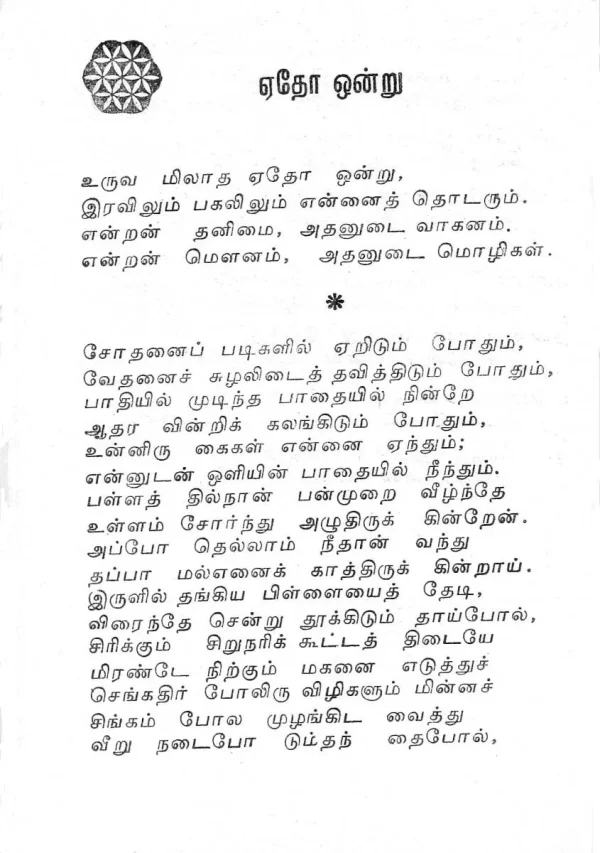 ஏதோ ஒன்று
உருவ மிலாத ஏதோ ஒன்று,
இரவிலும் பகலிலும் என்னைத் தொடரும்.
என்றன் தனிமை, அதனுடை வாகனம்.
என்றன் மௌனம், அதனுடை மொழிகள்.
சோதனைப் படிகளில் ஏறிடும் போதும்,
வேதனைச் சுழலிடைத் தவித்திடும் போதும்,
பாதியில் முடிந்த பாதையில் நின்றே
ஆதர வின்றிக் கலங்கிடும் போதும்,
உன்னிரு கைகள் என்னை ஏந்தும்;
என்னுடன் ஒளியின் பாதையில் நீந்தும்.
பள்ளத் தில்நான் பன்முறை வீழ்ந்தே
உள்ளம் சோர்ந்து அழுதிருக் கின்றேன்.
அப்போ தெல்லாம் நீதான் வந்து
தப்பா மல்எனைக் காத்திருக் கின்றாய்.
இருளில் தங்கிய பிள்ளையைத் தேடி,
விரைந்தே சென்று தூக்கிடும் தாய்போல்,
சிரிக்கும் சிறுநரிக் கூட்டத் திடையே
மிரண்டே நிற்கும் மகனை எடுத்துச்
செங்கதிர் போலிரு விழிகளும் மின்னச்
சிங்கம் போல முழங்கிட வைத்து
வீறு நடைபோ டும்தந் தைபோல்,